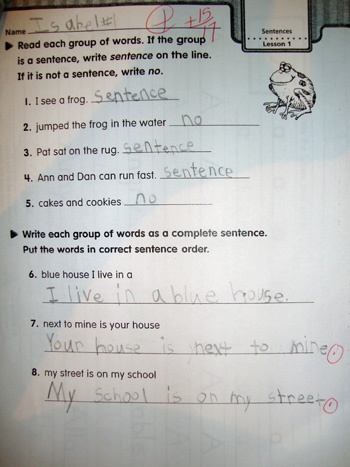 Name Isabel #1
+15
Sentences
Lesson 1
Read each group of words. If the group
is a sentence, write sentence on the line.
If it is not a sentence, write no.
1. I see a frog. Sentence
2. jumped the frog in the water no
3. Pat sat on the rug. sentence
4. Ann and Dan can run fast. sentence
5. cakes and cookies no
Write each group of words as a complete sentence.
Put the words in correct sentence order.
6. blue house I live in a
I live in a blue house.
7. next to mine is your house
Your house is next to mine.
8. my street is on my school
My school is on my street.